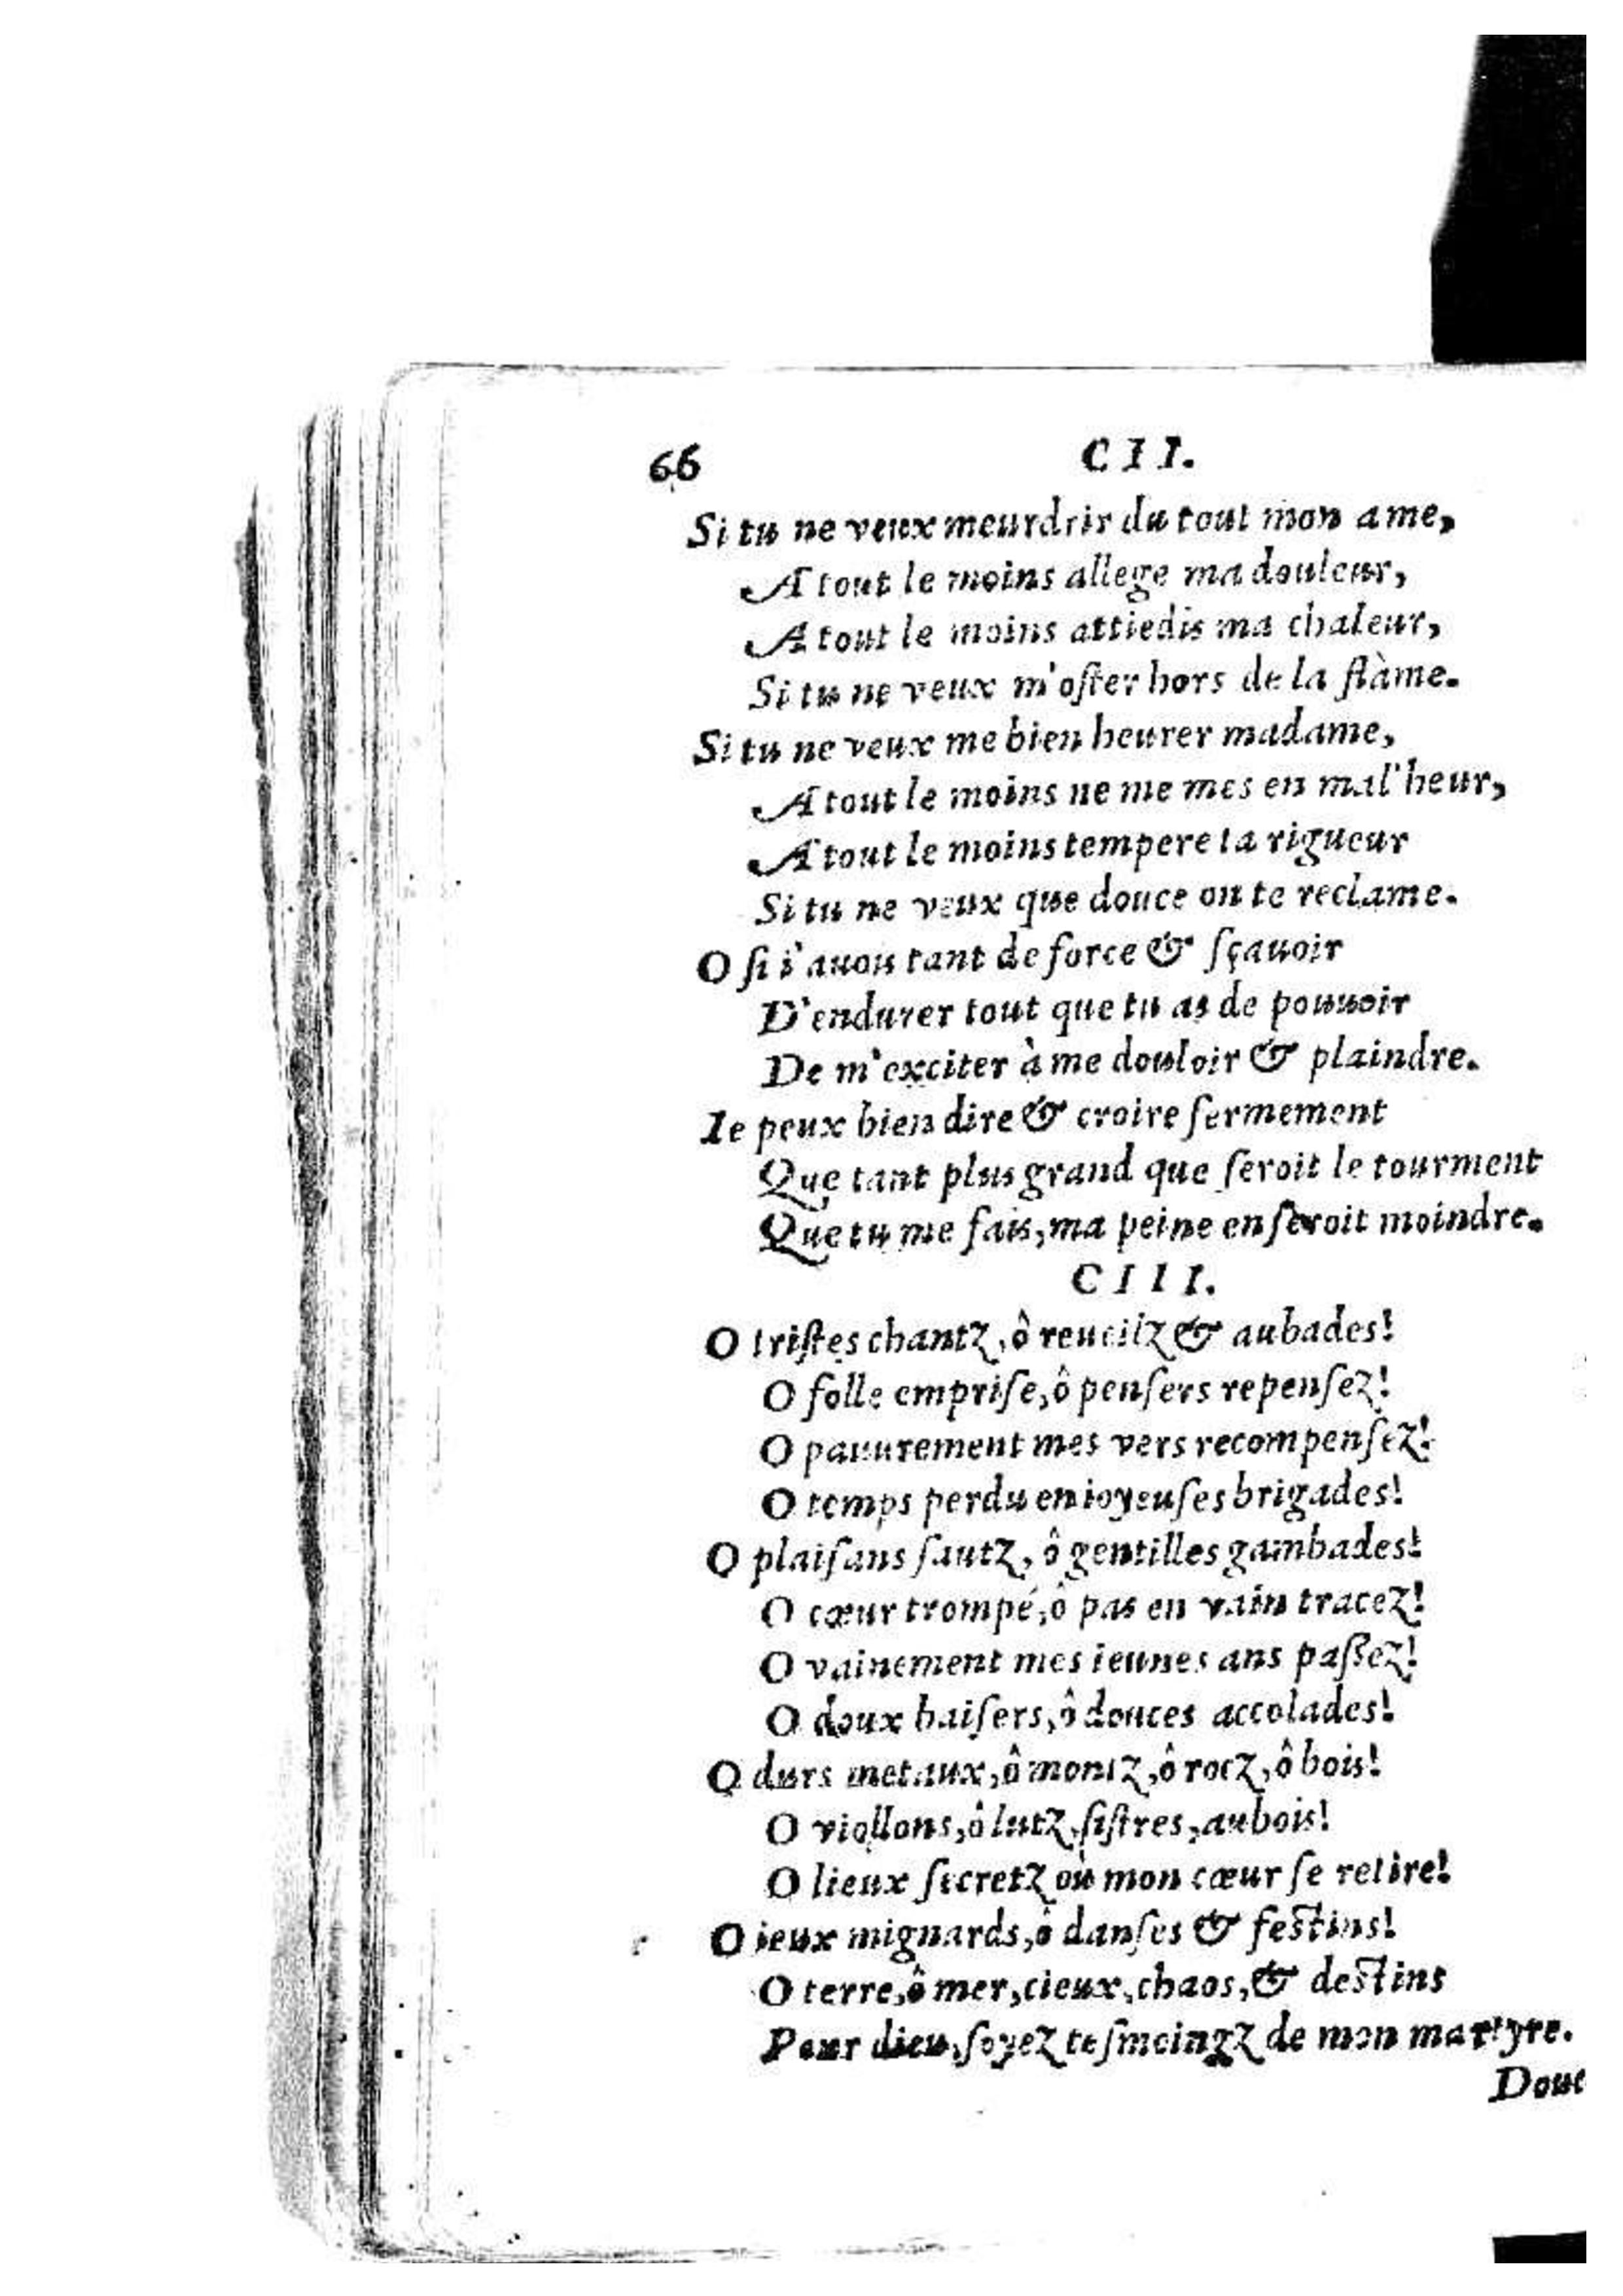 66
CII.
Si tu ne veux meurdrir du tout mon ame,
A tout le moins allege ma douleur,
A tout le moins attiedis ma chaleur,
Si tu ne veux m'oſter hors de la flàme.
Si tu ne veux me bien heurer madame,
A tout le moins ne me mes en mal'heur,
A tout le moins tempere ta rigueur
Si tu ne veux que douce on te reclame.
O ſi i'auois tant de force & ſçauoir
D'endurer tout que tu as de pouuoir
De m'exciter à me douloir & plaindre.
Ie peux bien dire & croire fermement
Que tant plus grand que ſeroit le tourment
Que tu me fais, ma peine en ſeroit moindre.
CIII.
O triſtes chantz, ô reueilz & aubades!
O folle empriſe, ô penſers repenſez!
O pauurement mes vers recompenſez!
O temps perdu en ioyeuſes brigades!
O plaiſans ſautz, ô gentilles gambades!
O cœur trompé, ô pas en vain tracez!
O vainement mes ieunes ans paſſez!
O doux baiſers, ô douces accolades!
O durs metaux, ô montz, ô rocz, ô bois!
O viollons, ô lutz, ſiſtres, aubois!
O lieux ſecretz où mon cœur ſe retire!
O ieux mignards, ô danſes & feſtins!
O terre, ô mer, cieux, chaos, & deſtins
Pour dieu, ſoyez teſmoingz de mon martyre.
Douc